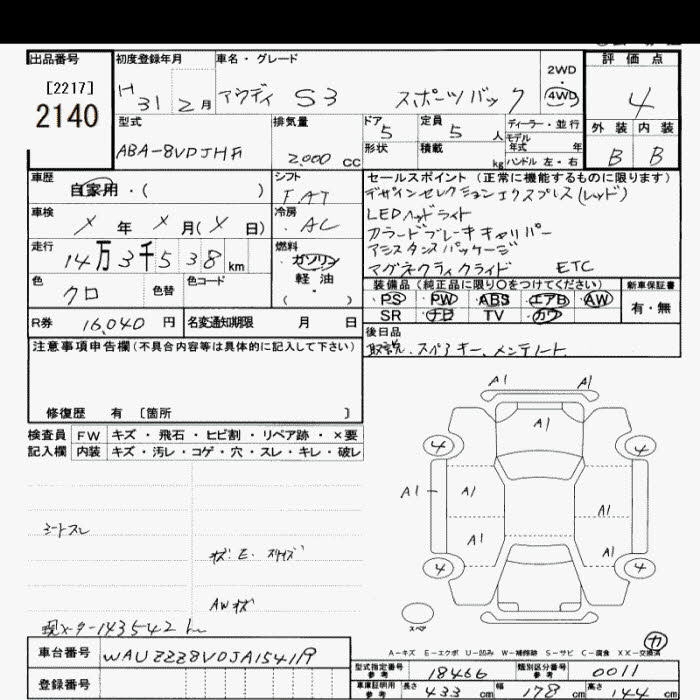 出品番号 初度登録年月 車名・グレード 2WD・4WD 評価点
[2217]
2140
H 31 2月 アウディ S3 スポーツバック 4
型式 排気量 ドア 定員 ディーラー・並行 外装 内装
ABA-8VDJHF 2,000 CC 5 5人 モデル年式 年 B B
形状 積載 kg ハンドル 左・右
車歴 自家用・( ) シフト FAT セールスポイント(正常に機能するものに限ります)
デザインセレクションエクスプレス(レッド)
車検 X年 X月(X日) 冷房 AC LEDヘッドライト
カラードブレーキキャリパー
走行 14万3千538km 燃料 ガソリン 軽油 ( ) アシスタンスパッケージ
マグネティックライド ETC
色 クロ 色替 色コード 装備品(純正品に限り〇をつけてください) 新車保証書
PS PW ABS エアB AW 有・無
R券 16,040円 名変通知期限 月 日 SR TV
後日品
注意事項申告欄(不具合内容等は具体的に記入して下さい) 取説、スペアキー、メンテノート
修復歴 有 [箇所 ]
検査員 FW キズ・飛石・ヒビ割・リペア跡・×要
記入欄 内装 キズ・汚レ・コゲ・穴・スレ・キレ・破レ
A1 A1
A1
4 4
A1 A1 A1
A1
4 4
シートスレ
AWキズ
スペア
現メーター143542km
A-キズ E-エクボ U-凹み W-補修跡 S-サビ C-腐食 XX-交換済
車台番号 WAUZZZ8V0JA154119
型式指定番号 参考 18466 類別区分番号 参考 0011
登録番号 車庫証明用 参考 長さ 433cm 幅 178cm 高さ 144cm